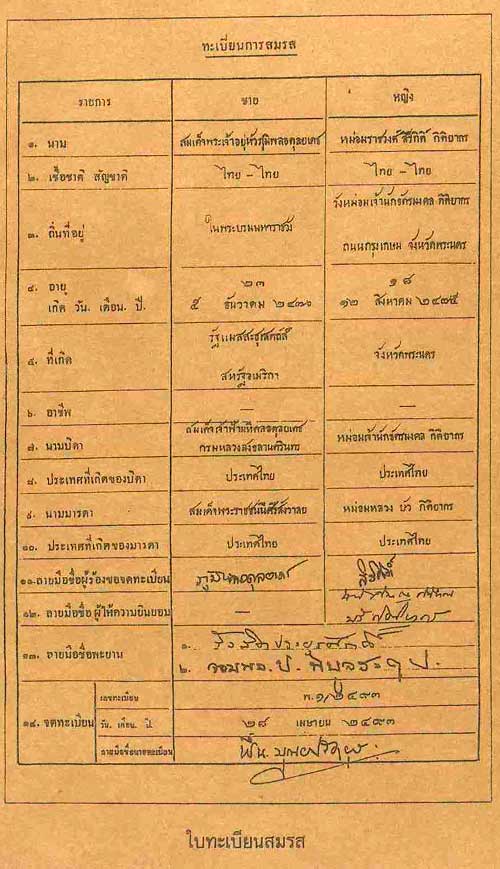 ทะเบียนการสมรส
รายการ ชาย หญิง
๑. นาม สมเด็จพระเจ้าอยู่หัวภูมิพลอดุลยเดช หม่อมราชวงศ์ สิริกิติ์ กิติยากร
๒. เชื้อชาติ สัญชาติ ไทย - ไทย ไทย - ไทย
วังหม่อมเจ้านักขัตรมงคล กิติยากร
๓. ถิ่นที่อยู่ ในพระบรมมหาราชวัง
ถนนกรุงเกษม จังหวัดพระนคร
๔. อายุ ๒๓ ๑๘
เกิด วัน. เดือน. ปี. ๕ ธันวาคม ๒๔๗๐ ๑๒ สิงหาคม ๒๔๗๕
รัฐแมสสะชูเสตส์
๕. ที่เกิด จังหวัดพระนคร
สหรัฐอเมริกา
๖. อาชีพ —
สมเด็จเจ้าฟ้ามหิดลอดุลยเดช
๗. นามบิดา กรมหลวงสงขลานครินทร หม่อมเจ้านักขัตรมงคล กิติยากร
๘. ประเทศที่เกิดของบิดา ประเทศไทย ประเทศไทย
๙. นามมารดา สมเด็จพระราชชนนีศรีสังวาลย หม่อมหลวง บัว กิติยากร
๑๐. ประเทศที่เกิดของมารดา ประเทศไทย ประเทศไทย
๑๑. ลายมือชื่อผู้ร้องขอจดทะเบียน ภูมิพลอดุลยเดช สิริกิติ์
๑๒. ลายมือชื่อ ผู้ให้ความยินยอม —
๑. รังสิตประยูรศักดิ์
๑๓. ลายมือชื่อพะยาน
๒. จอมพล ป. พิบูลสงคราม
เลขทะเบียน พ.๑/๒๔๙๓
๑๔. จดทะเบียน วัน. เดือน. ปี. ๒๘ เมษายน ๒๔๙๓
ลายมือชื่อนายทะเบียน ฟื้น บุณยปรัตยุธ
ใบทะเบียนสมรส